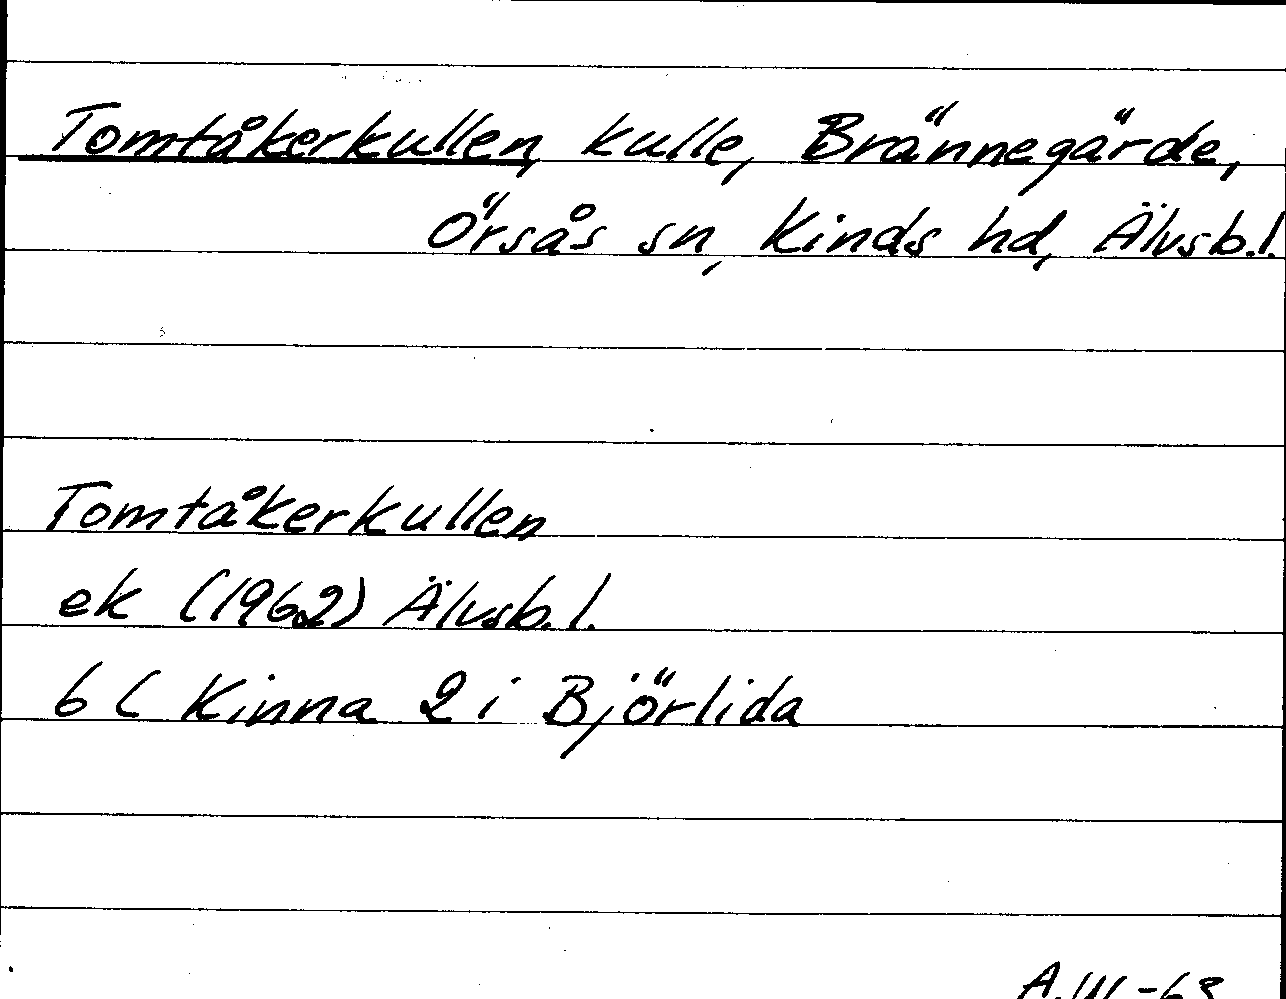 Tomtåkerkullen, kulle, Brännegärde,
Örsås sn, Kinds hd, Älvsb.l.
Tomtåkerkullen
ek (1962) Älvsb.l.
6C Kinna 2i Björlida